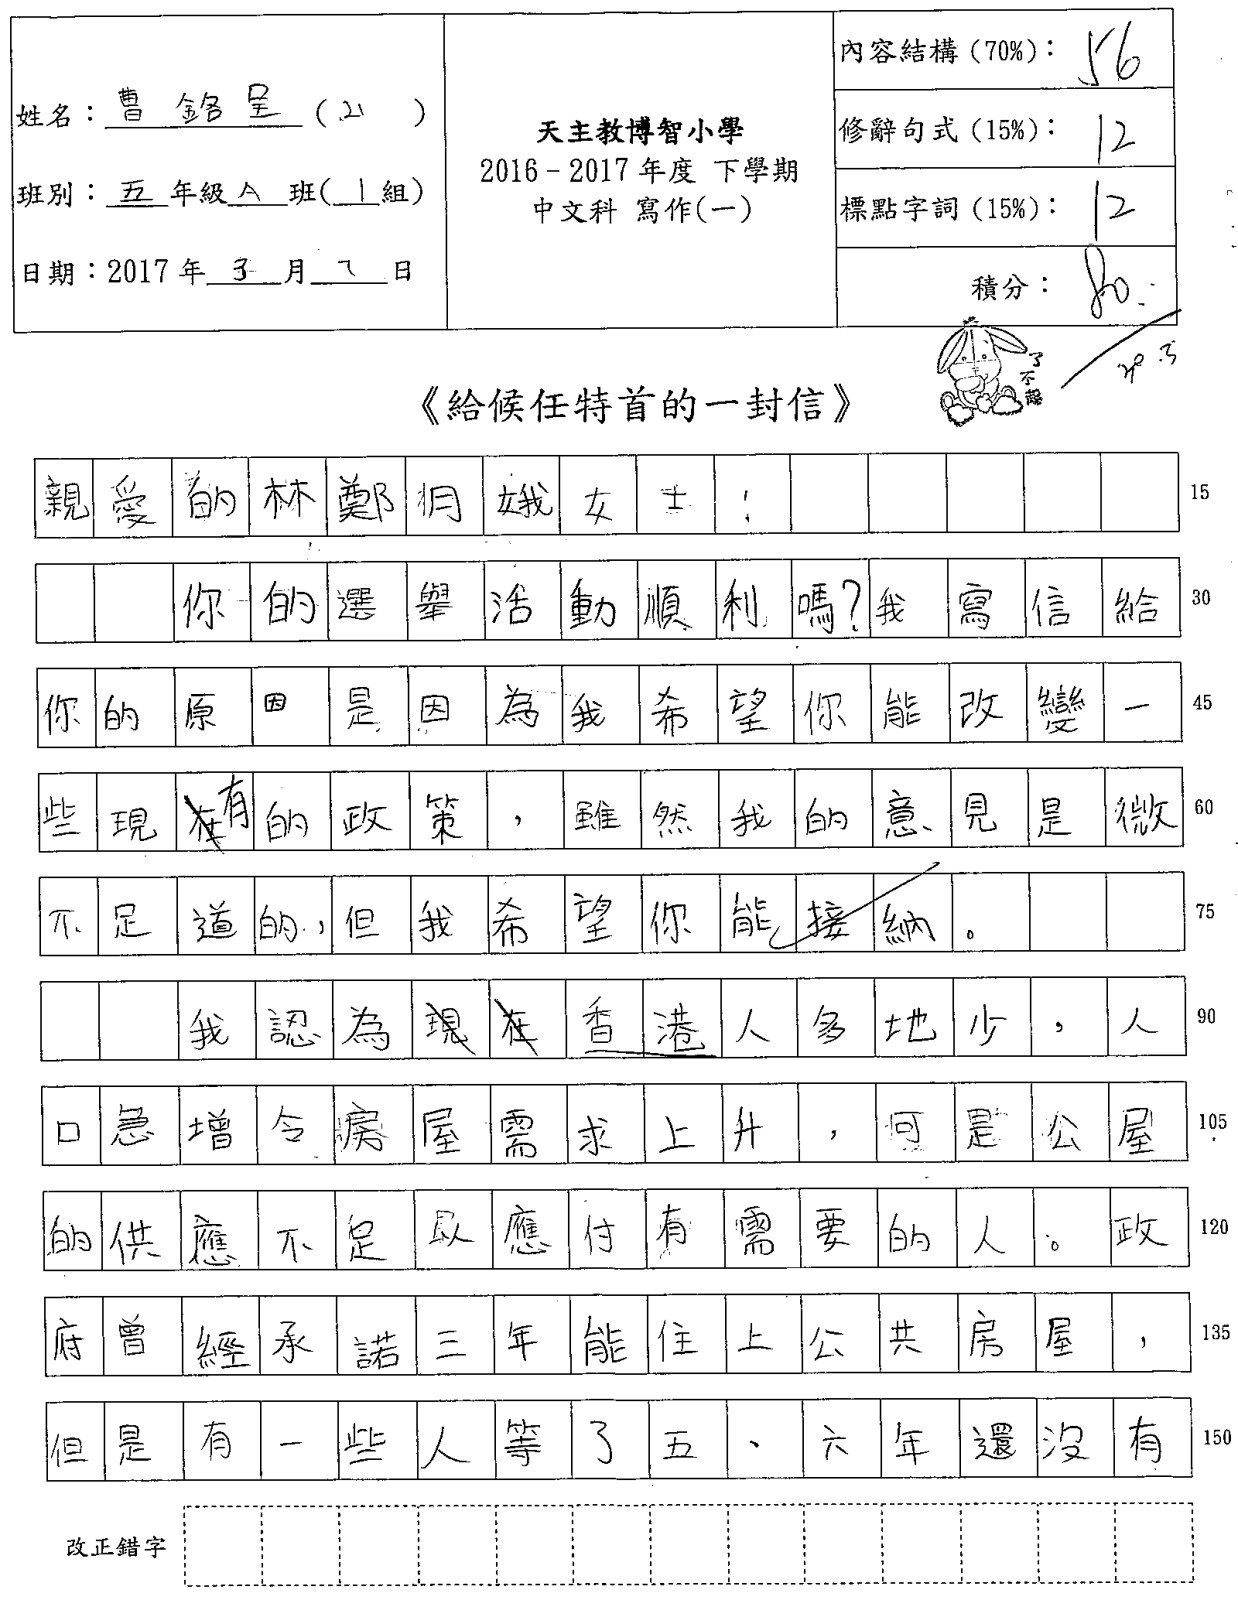 姓名：曹銘呈(21)
班別：五年級A班(1組)
日期：2017年3月7日
天主教博智小學
2016－2017年度 下學期
中文科 寫作(一)
內容結構(70%)：56
修辭句式(15%)：12
標點字詞(15%)：12
積分：80
了不起
《給候任特首的一封信》
親愛的林鄭月娥女士： 15
你的選舉活動順利嗎？我寫信給 30
你的原因是因為我希望你能改變一 45
些現有的政策，雖然我的意見是微 60
不足道的，但我希望你能接納。 75
我認為香港人多地少，人 90
口急增令房屋需求上升，可是公屋 105
的供應不足以應付有需要的人。政 120
府曾經承諾三年能住上公共房屋， 135
但是有一些人等了五、六年還沒有 150
改正錯字